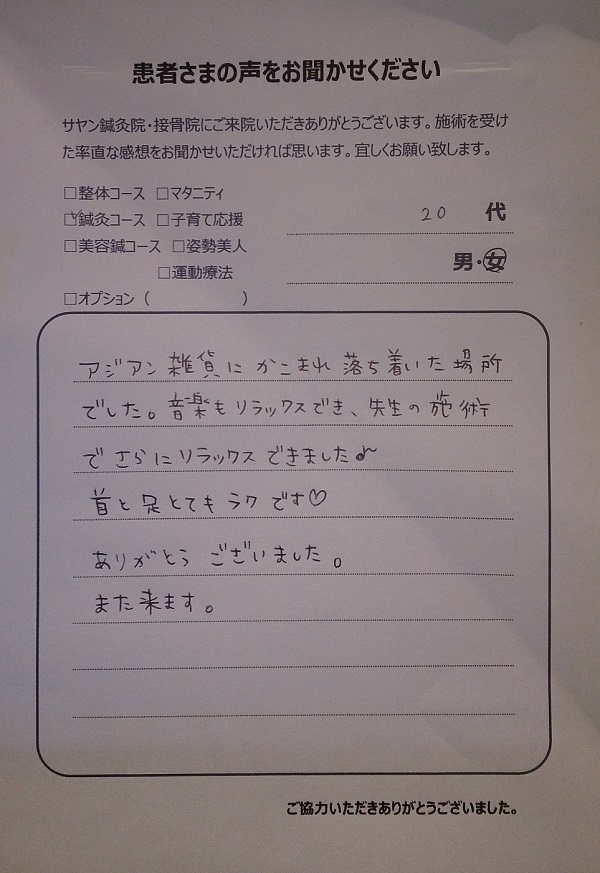 患者さまの声をお聞かせください
サヤン鍼灸院・接骨院にご来院いただきありがとうございます。施術を受け
た率直な感想をお聞かせいただければ思います。宜しくお願い致します。
□整体コース □マタニティ
☑鍼灸コース □子育て応援
20 代
□美容鍼コース □姿勢美人
男・女
□運動療法
□オプション（ ）
アジアン雑貨にかこまれ落ち着いた場所
でした。音楽もリラックスでき、先生の施術
でさらにリラックスできました♪
首と足とてもラクです♡
ありがとうございました。
また来ます。
ご協力いただきありがとうございました。